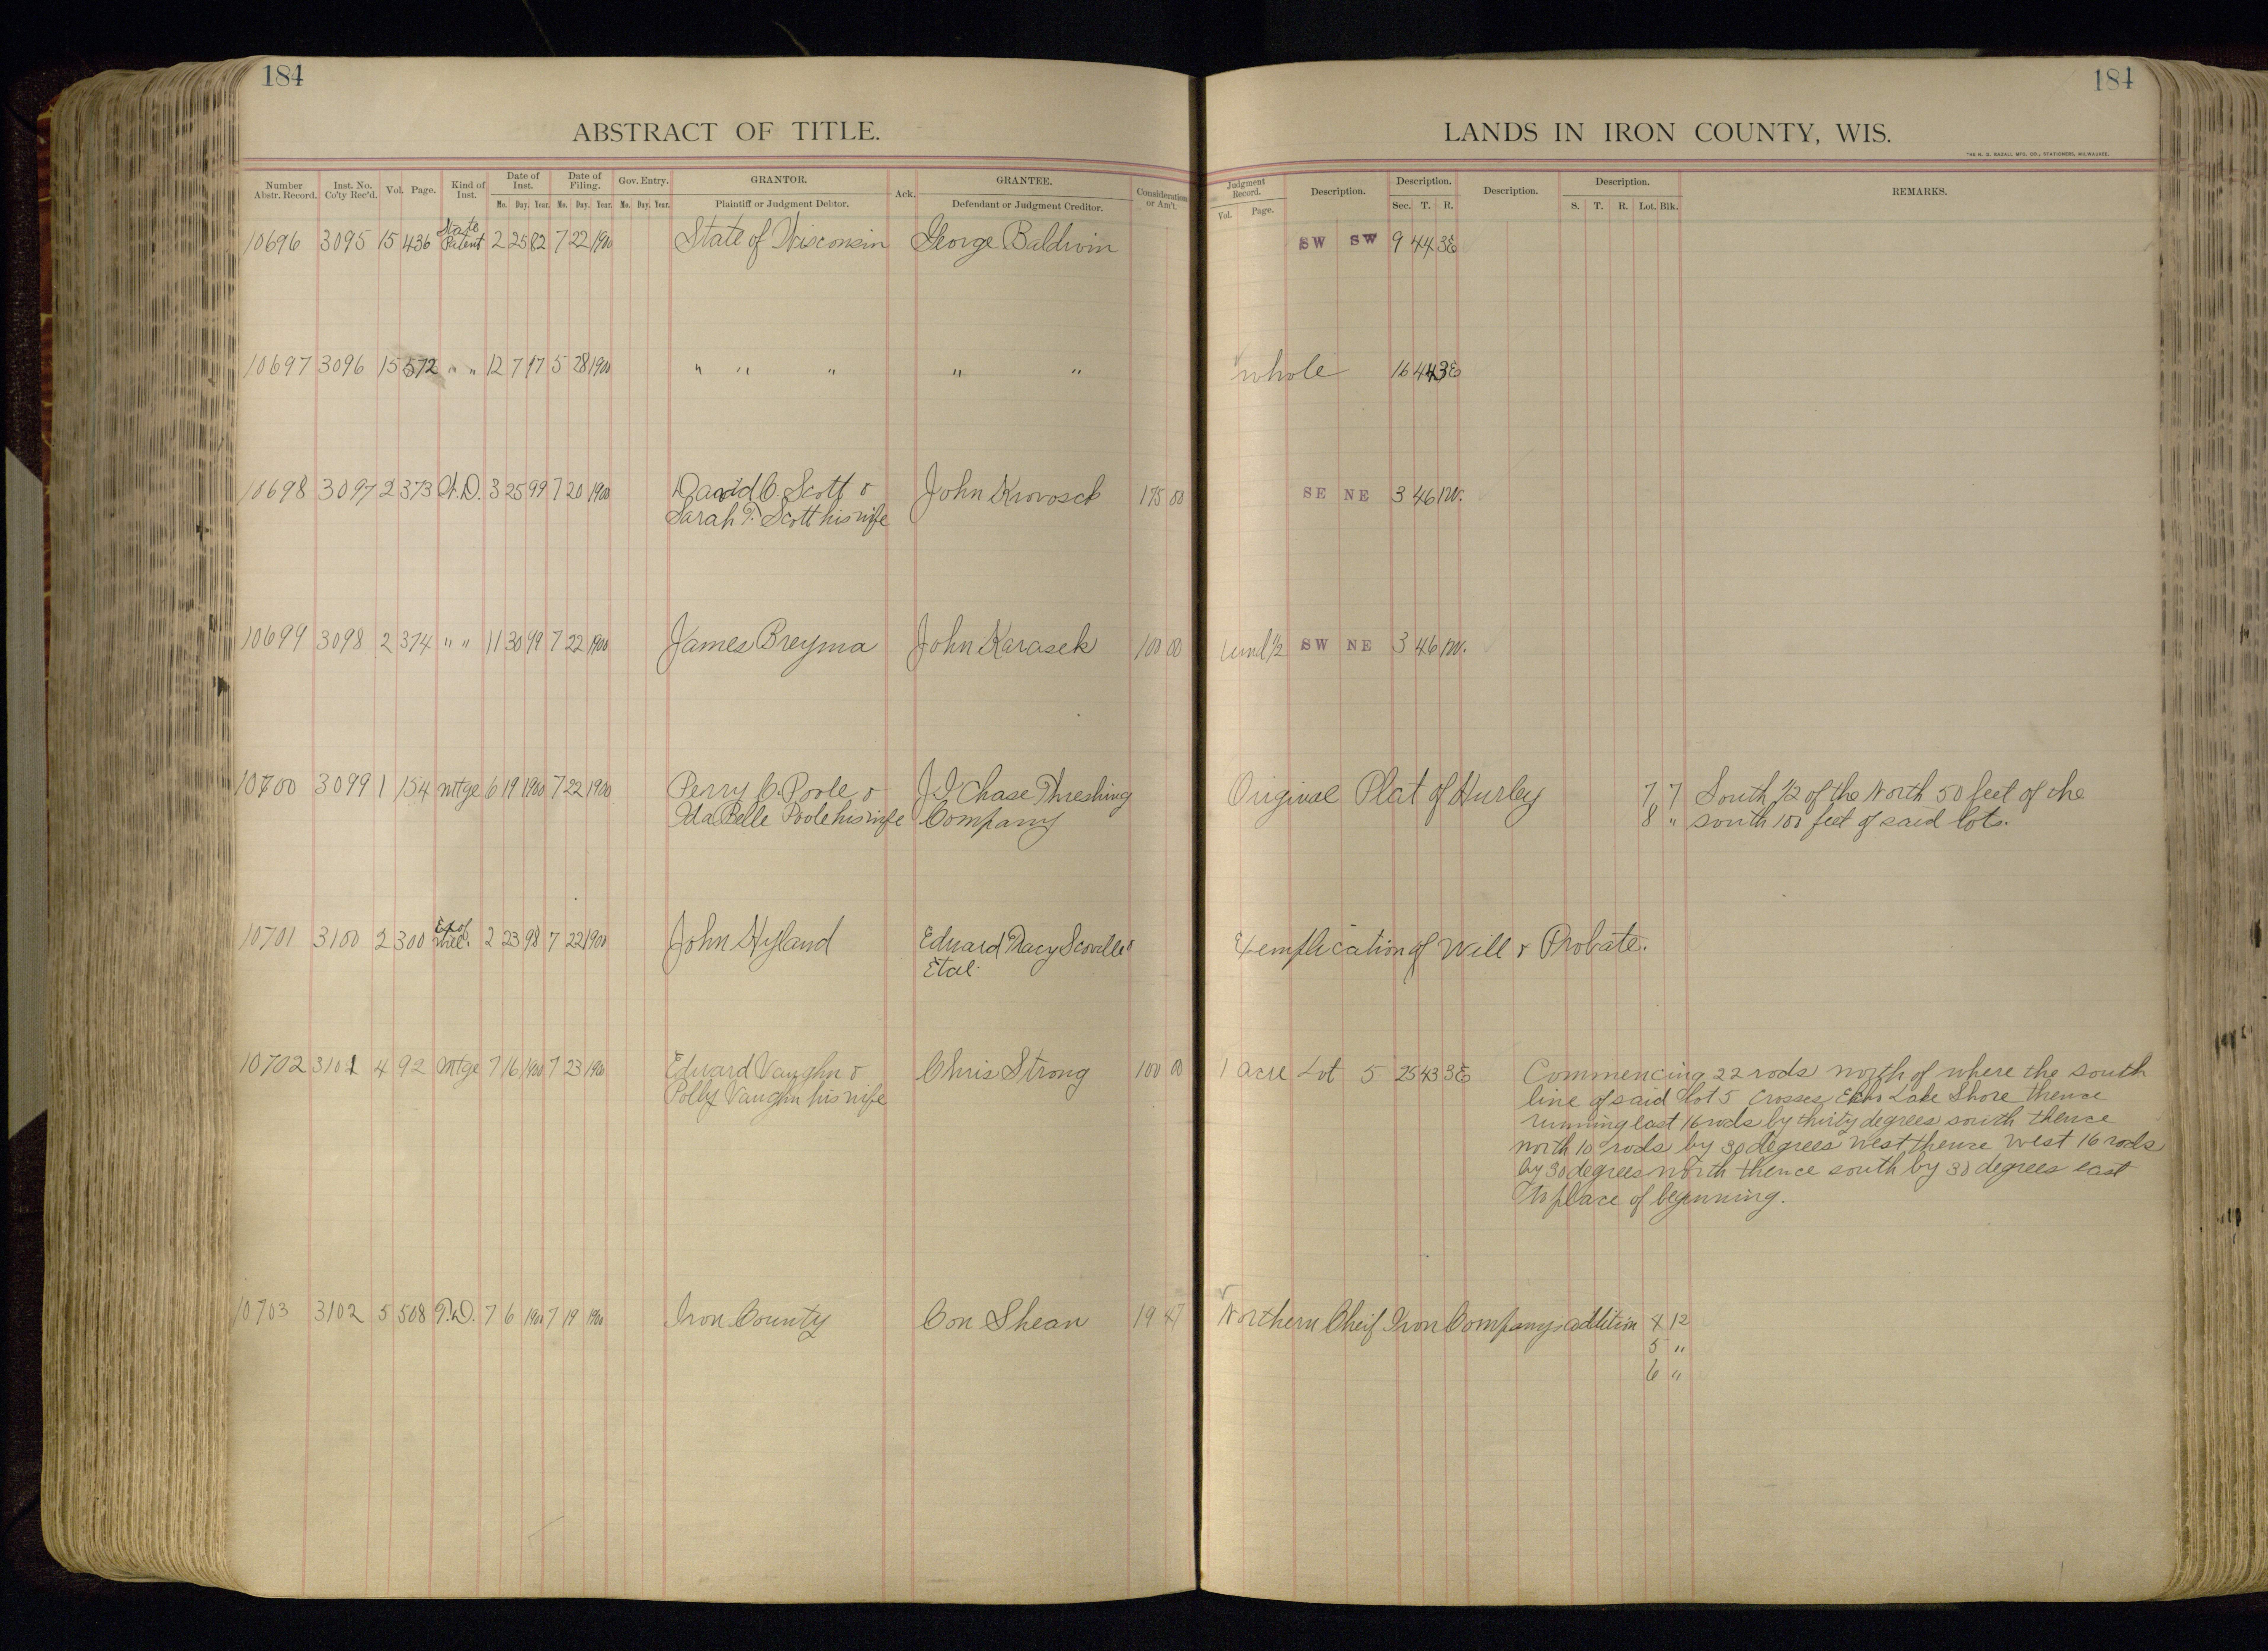 184
184
ABSTRACT OF TITLE.
LANDS IN IRON COUNTY, WIS.
THE H. G. RAZALL MFG. CO., STATIONERS, MILWAUKEE.
Number Abstr. Record. Inst. No. Co'ty Rec'd. Vol. Page. Kind of Inst. Date of Inst. Mo. Day. Year. Date of Filing. Mo. Day. Year. Gov. Entry. Mo. Day. Year. GRANTOR. Plaintiff or Judgment Debtor. Ack. GRANTEE. Defendant or Judgment Creditor. Consideration or Am't. Judgment Record. Vol. Page. Description. Description. Sec. T. R. Description. Description. S. T. R. Lot. Blk. REMARKS.
10696 3095 15 436 State Patent 2 25 82 7 22 1900 State of Wisconsin George Baldwin SW SW 9 44 3E
10697 3096 15 572 " " 12 7 97 5 28 1900 " " " " " whole 16 44 3E
10698 3097 2 373 W.D. 3 25 99 7 20 1900 David C. Scott & John Krovosck 175 00 SE NE 3 46 1W.
Sarah T. Scott his wife
10699 3098 2 374 " " 11 30 99 7 22 1900 James Breyma John Karasek 100 00 und 1/2 SW NE 3 46 1W.
10700 3099 1 154 mtge 6 19 1900 7 22 1900 Perry C. Poole & J I Chase Threshing Original Plat of Hurley 7 7 South 1/2 of the North 50 feet of the
Ida Belle Poole his wife Company 8 " south 100 feet of said lots.
10701 3100 2 300 Ex of Will. 2 23 98 7 22 1900 John Hyland Edward Tracy Scoville Exemplication of Will & Probate.
Etal.
10702 3101 4 92 Mtge 7 16 1900 7 23 1900 Edward Vaughn & Chris Strong 100 00 1 acre Lot 5 25 43 3E Commencing 22 rods north of where the south
Polly Vaughn his wife line of said lot 5 crosses Echo Lake Shore thence
running east 16 rods by thirty degrees south thence
north 10 rods by 30 degrees West thence West 16 rods
by 30 degrees north thence south by 30 degrees east
to place of beginning.
10703 3102 5 508 T.D. 7 6 1900 7 19 1900 Iron County Con Shean 19 47 Northern Cheif Iron Companys addition 4 12
5 "
6 "